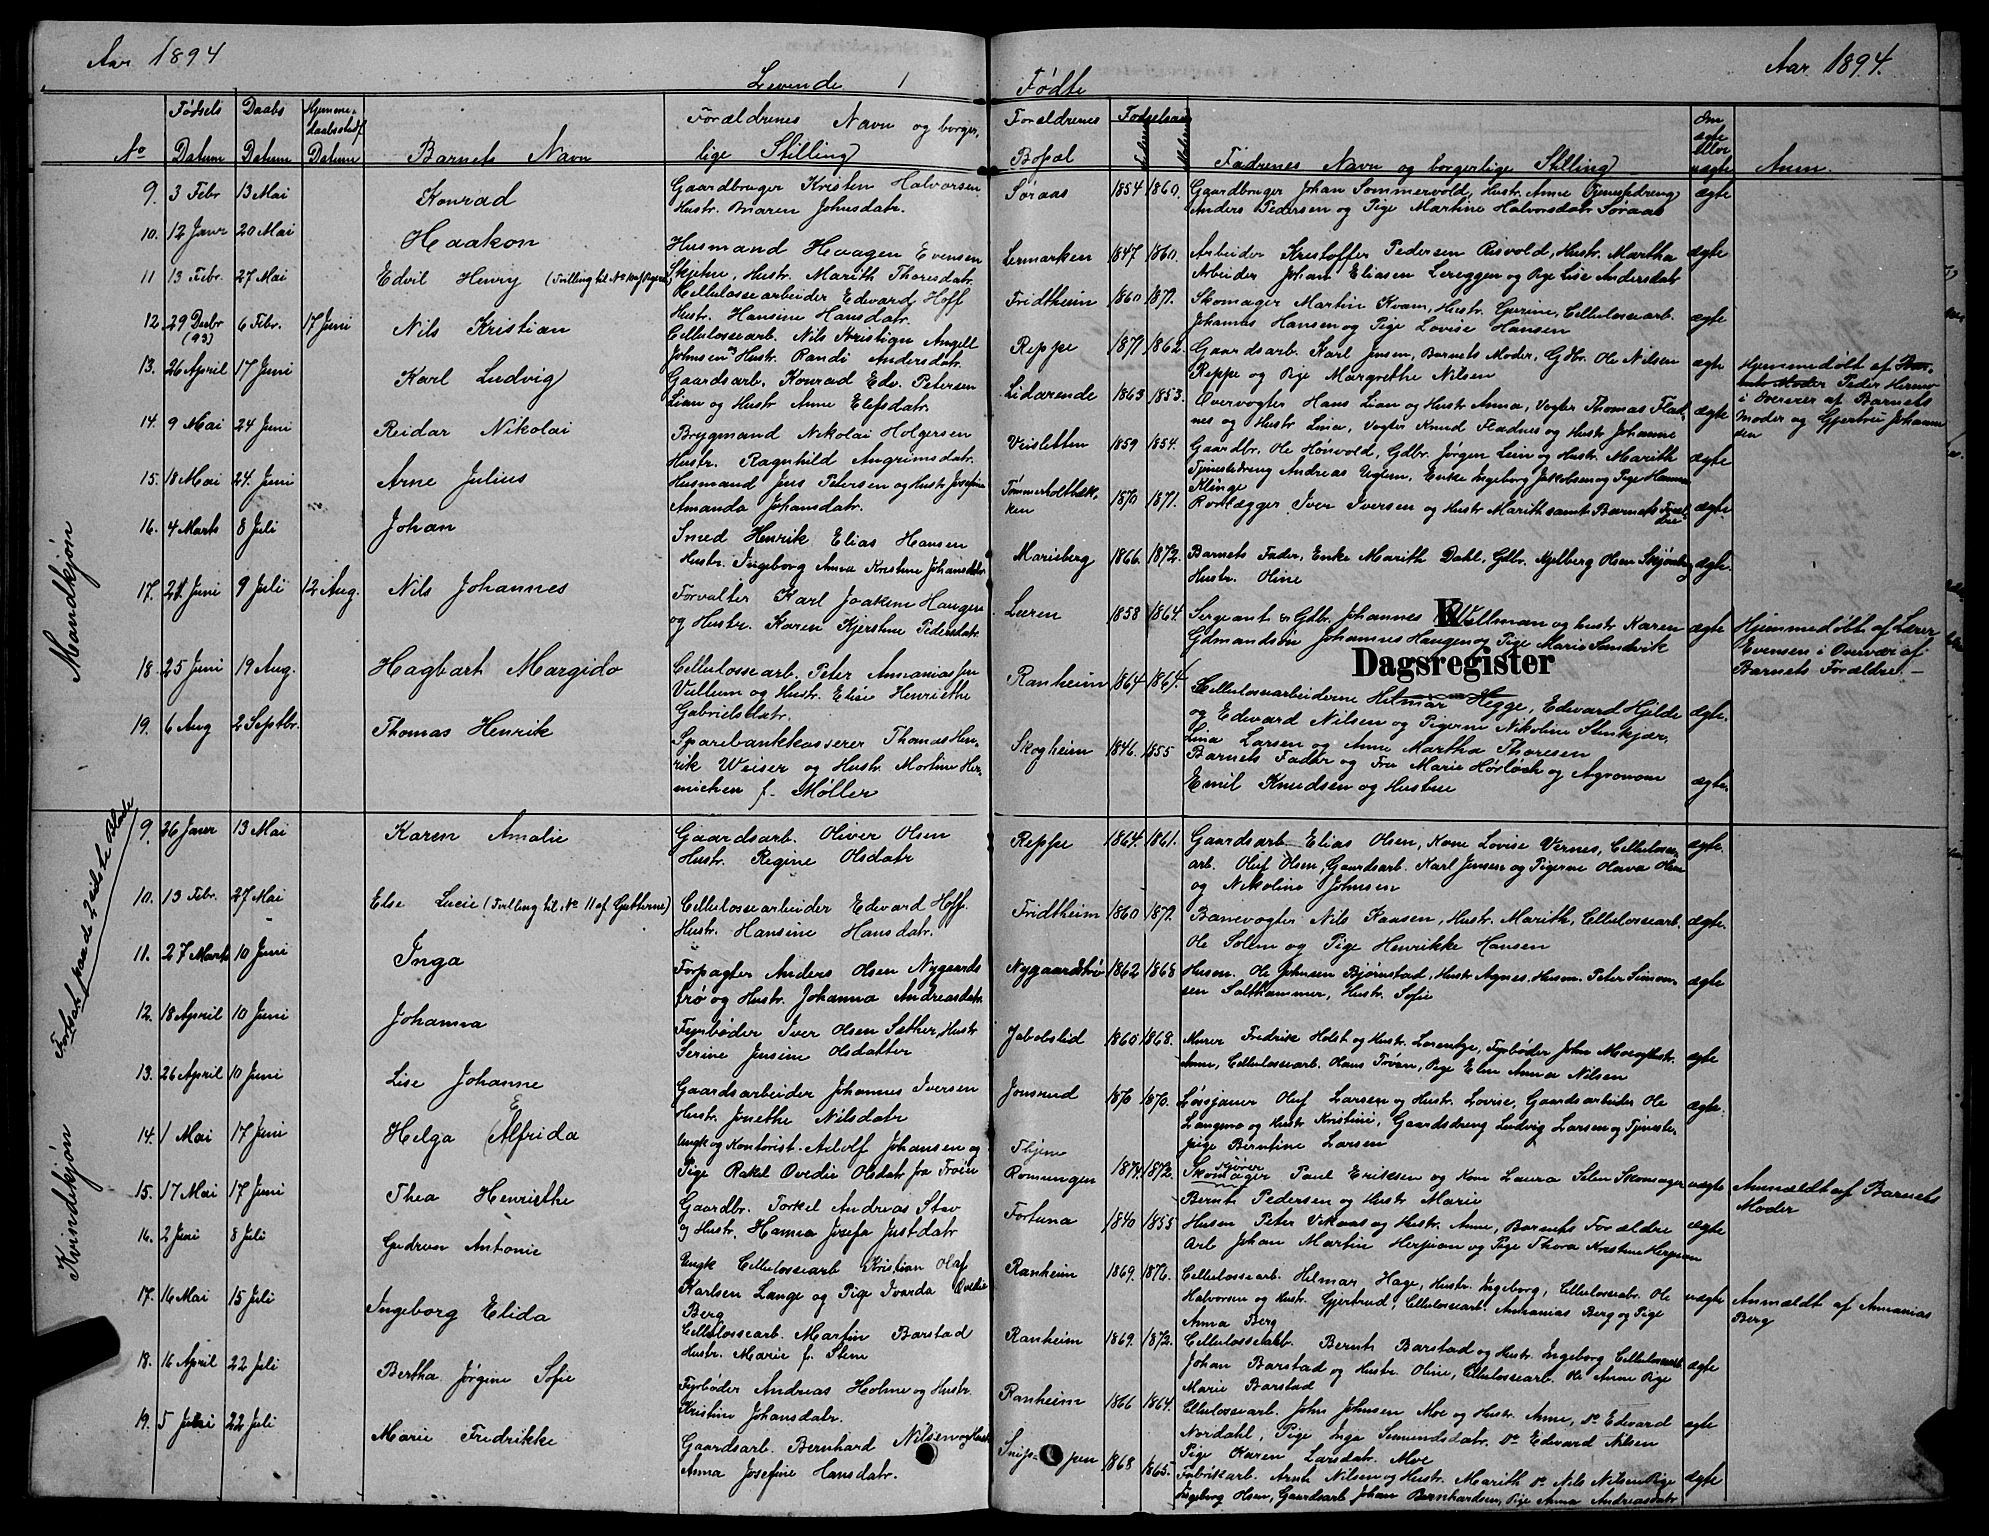 Aar 1894
Levende 1
Fødte
Aar 1894.
No
Fødsels Datum
Daabs Datum
Hjemmedaabsstadf. Datum
Barnets Navn
Forældrenes Navn og borgerlige Stilling
Forældrenes Bopæl
Fødselsaar
Fadrenes Navn og borgerlige Stilling
Om ægte eller uægte
Anm.
Mandkjøn
9. 3 Febr 13 Mai Konrad
Gaardbruger Kristen Halvorsen
Hustr. Maren Johnsdatr.
Søraas 1854 1860.
Gaardbruger Johan Sommervold, Hustr. Anne Tjenestedreng
Anders Pedersen og Pige Martine Halvorsdatr. Søraas
ægte
10. 12 Janr 20 Mai Haakon
Husmand Haagen Evensen
Skjetne, Hustr. Marith Thoresdatr.
Lermarken 1847 1860.
Arbeider Kristoffer Pedersen Risvold, Hustr. Martha
Arbeider Johan Eliasen Lereggen og Pige Lise Andersdatr
ægte
11 13 Febr. 27 Mai Edvil Henry (Tvilling til No 10 af Pigerne)
Cellulossearbeider Edvard Hoff
Hustr. Hansine Hansdatr.
Fridtheim 1860 1872.
Skomager Martin Kvam, Hustr. Gurine, Cellulossearb.
Johannes Hansen og Pige Lovise Hansen
ægte
12. 29 Decbr (93) 6 Febr. 17 Juni Nils Kristian
Cellulossearb. Nils Kristian Angell
Johnsen Hustr. Randi Andersdatr.
Reppe 1871 1862.
Gaardsarb. Karl Jensen, Barnets Moder, Gdbr. Ole Nilsen
Reppe og Pige Margrethe Nilsen
ægte
Hjemmedøbt af
Peder Hermo
i Overvær af Barnets
Moder og Gjertru Johann
sen
13. 26 April 17 Juni Karl Ludvig
Gaardsarb. Konrad Edv. Petersen
Lian og Hustr Anne Elefsdatr.
Lidarende 1863 1853.
Overvogter Hans Lian og Hustr Anna, Vogter Thomas Flad-
nes og Hustr Lina, Vogter Knud Fladnes og Hustr Johanne
ægte
14. 9 Mai 24 Juni Reidar Nikolai
Brygmand Nikolai Holgersen
Hustr. Ragnhild Angrimsdatr.
Veisletten 1859 1854.
Gaardbr. Ole Hønvold, Gdbr. Jørgen Lein og Hustr. Marith
Tjenestedreng Andreas Ugum, Enke Ingeborg Jakobsen og Pige Hanna
Klinge
ægte
15. 18 Mai 24. Juni Arne Julius
Husmand Jens Petersen og Hustr Josefine
Amanda Johansdatr.
Tømmerholtbæk-
ken 1870 1871.
Rørlægger Iver Iversen og Hustr. Marith samt Barnets Foræl-
dre
ægte.
16. 4 Marts 8 Juli Johan
Smed Henrik Elias Hansen
Hustr. Ingeborg Anna Kristine Johansdatr
Marisberg 1866. 1872.
Barnets Fader, Enke Marith Dahl, Gdbr. Mjelberg Olsen Skjønberg
Hustr. Oline
ægte.
17. 21 Juni 9 Juli 12 Aug. Nils Johannes
Forvalter Karl Joakim Haugen
og Hustr. Karen Kjerstine Pedersdatr.
Læren 1858 1864.
Sergeant & Gdbr. Johannes Wullman og hustr Karen
Gdmandsøn Johannes Haugen og Pige Marie Sandvik
ægte
Hjemmedøbt af Lærer
Evensen i Overvær af
Barnets Forældre.
K
Dagsregister
18. 25 Juni 19 Aug. Hagbart Margido
Cellulossearb. Peter Annanias
Vullum og Hustr. Elise Henriethe
Gabrielsdatr.
Ranheim 1864 1864.
Cellulossearbeiderne Hilmar Hegge, Edevard Hjelde
og Edevard Nilsen og Pigerne Nikoline Stenkjær,
Lina Larsen og Anne Martha Thoresen
ægte.
19. 6 Aug 2 Septbr. Thomas Henrik
Sparebankkasserer Thomas Hen-
rik Weiser og Hustr. Mortine Her-
michen f. Møller
Skogheim 1846. 1855
Barnets Fader og Fru Marie Hørløck og Agronom
Emil Knudsen og Hustrue
ægte.
Kvindekjøn
Fortsat paa de 2 sidste Blade
9. 26 Janr 13 Mai Karen Amalie
Gaardsarb. Oliver Olsen
Hustr. Regine Olsdatr
Reppe 1864. 1861.
Gaardsarb Elias Olsen, Kone Lovise Vernes, Cellulosse-
arb. Oluf Olsen, Gaardsarb. Karl Jensen og Pigerne Hava Olsen
og Nikoline Johnsen
ægte.
10. 13 Febr. 27 Mai Else Lucie (Tvilling til No 11 af Gutterne)
Cellulossearbeider Edevard Hoff.
Hustr. Hansine Hansdatr.
Fridtheim 1860 1872.
Banevogter Nils Hansen, Hustr. Marith, Cellulossearb.
Ole Solem og Pige Henrikke Hansen
ægte.
11. 27 Marts 10 Juni Inga
Forpagter Anders Olsen Nygaards
trø og Hustr. Johanna Andreasdatr.
Nygaardstrø 1862 1863
Husm. Ole Johnsen Bjørnstad, Hustr Agnes, Husm. Peter Simon-
sen Saltkammer, Hustr. Sofie
ægte
12. 18 April 10 Juni Johanna
Fyrbøder Iver Olsen Sæther, Hustr
Serine Jensine Olsdatter
Jakobslid 1860 1868.
Murer Fredrik Holst og Hustr. Lorentze, Fyrbøder John Moe og Hustr.
Anne, Cellulossearb. Hans Trøen, Pige Elen Anna Nilsen
ægte
13. 26 April 10 Juni Lise Johanne
Gaardsarbeider Johannes Iversen
Hustr. Jonethe Nilsdatr
Jonsrud 1870 1870.
Løssjauer Oluf Larsen og Hustr. Lovise, Gaardsarbeider Ole
Langmo og Hustr Kristine, Gaardsdreng Ludvig Larsen og Tjeneste-
pige Berntine Larsen
ægte.
14. 1 Mai 17 Juni Helga (Alfrida
E
Ungk og Kontorist. Adolf Johansen og
Pige Rakel Ovedie Olsdatr fra Trøen
Thjem
Romungen 1874. 1872.
Skomager Paul Eriksen og Kone Laura Selen Skomager
Bernt Pedersen og Hustr Marie
uægte
Anmeldt af Barnets
Moder
15. 17 Mai 17 Juni Thea Henriethe
Gaardbr. Torkel Andreas Stav
og Hustr. Hanna Josefa Justdatr
Fortuna 1840 1855
Husm Peter Vikaas og Hustr. Anne, Barnets Forældre
Arb Johan Martin Herjuan og Pige Thora Kristine Herjuan
ægte
16. 2 Juni 8 Juli Gudrun Antonie
Ungk Cellulossearb Kristian Olaf
Karlsen Lange og Pige Ivarda Ovedie
Berg
Ranheim 1869. 1876.
Cellulossearb. Hilmar Hage, Hustr. Ingeborg, Cellulossearb. Ole
Halvorsen og Hustr. Gjertrud, Cellulossearb. Annanias Berg og Pige
Anna Berg
uægte
Anmeldt af Annanias
Berg
17. 16 Mai 15 Juli Ingeborg Elida
Cellulossearb. Martin Barstad
Hustr. Marie f. Steen
Ranheim 1869. 1872.
Cellulossearb. Bernt Barstad og Hustr. Ingeborg Cellulossearb
Johan Barstad og Hustr. Oline, Cellulossearb. Ole Anne Pige
Marie Barstad
ægte
18. 16 April 22 Juli Bertha Jørgine Sofie
Fyrbøder Andreas Holme og Hustr.
Kristine Johansdatr.
Ranheim 1866 1864.
Cellulossearb. John Johnsen Moe og Hustr. Anne, do Edvard
Nordahl, Pige Inga Semundsdatr. do Edevard Nilsen
Pige Karen Larsdatr. Moe
ægte
19. 5 Juni 22 Juli Marie Fredrikke
Gaardsarb. Bernhard Nilsen og Hustr
Anna Josefine Hansdatr.
Snip pen 1868 1865.
Fabriksarb. Arnt Nilsen og Hustr. Marith do Nils Nilsen Pige
Ingeborg Olsen, Gaardsarb Johan Bernhardsen, Pige Anna Andreasdatr
ægte